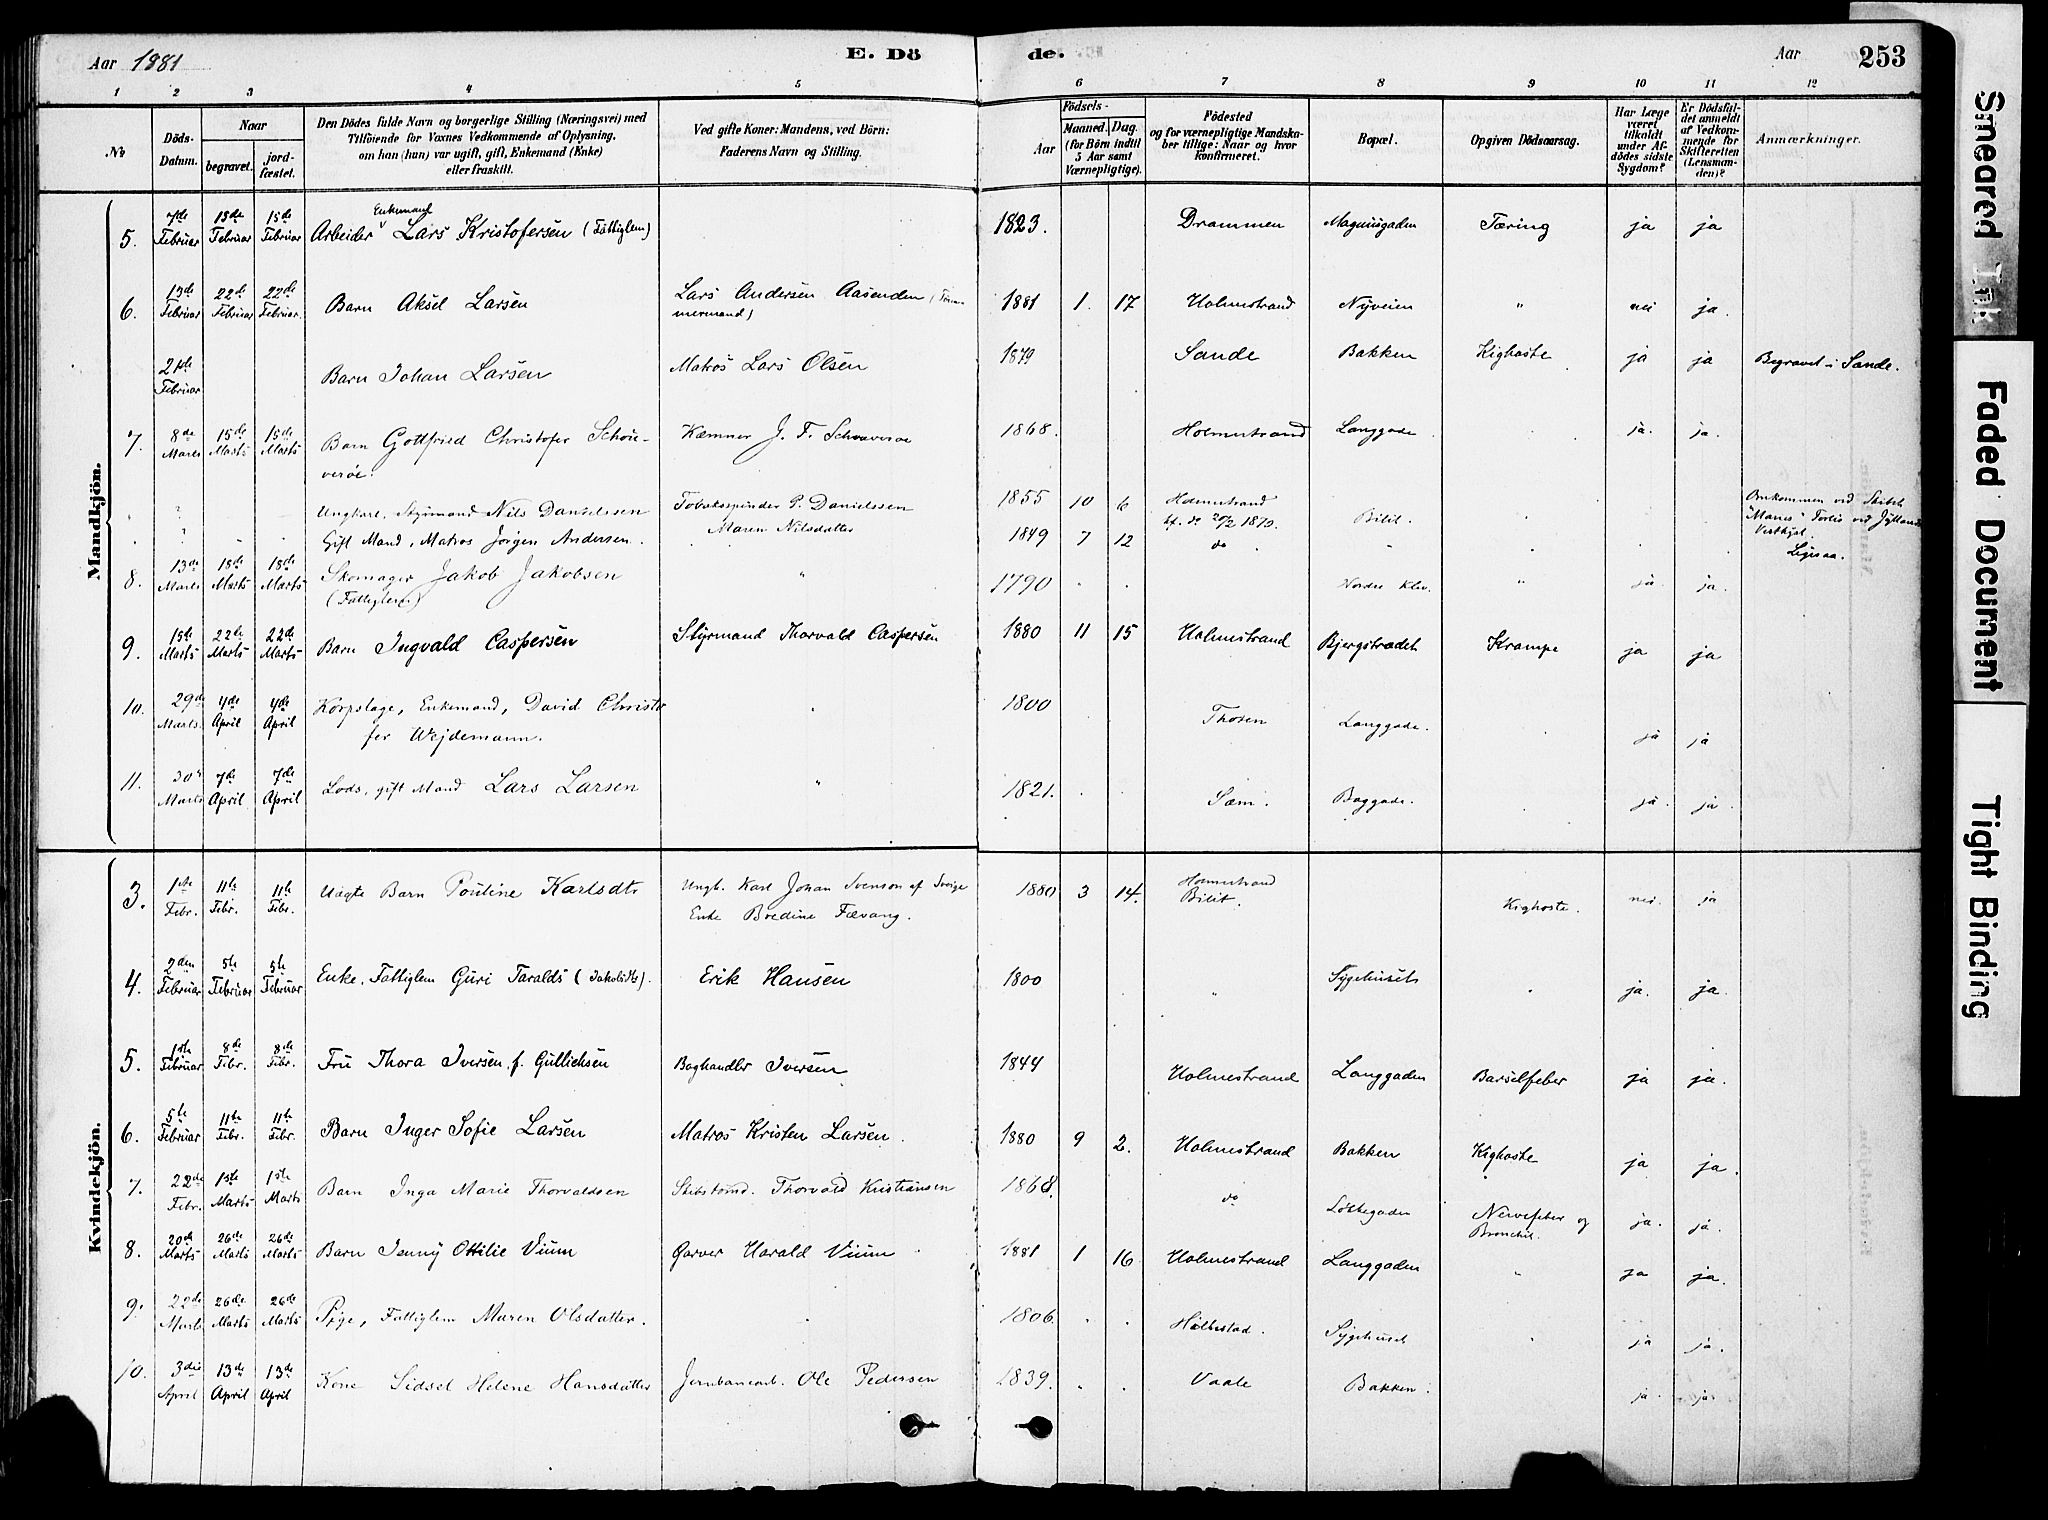 Aar 1881 E. Dö de. Aar 253
1 2 3 4 5 6 7 8 9 10 11 12
No
Döds-Datum.
Naar begravet. jordfæstet.
Den Dödes fulde Navn og borgerlige Stilling (Næringsvei) med
Tilföiende for Voxnes Vedkommende af Oplysning,
om han (hun) var ugift, gift, Enkemand (Enke)
eller fraskilt.
Ved gifte Koner: Mandens, ved Börn:
Faderens Navn og Stilling.
Födsels-
Aar Maaned. Dag.
(for Börn indtil
5 Aar samt
Værnepligtige).
Födested
og for værnepligtige Mandskaber tillige: Naar og hvor
konfirmeret.
Bopæl.
Opgiven Dödsaarsag.
Har Læge
været
tilkaldt
under Afdödes sidste
Sygdom?
Er Dödsfaldet anmeldt
af Vedkommende for
Skifteretten
(Lensmanden)?
Anmærkninger.
Mandkjön.
5. 7de Februar 15de Februar 15de Februar Arbeider Enkemand Lars Kristofersen (Fattiglem) 1823. Drammen Magnusgaden Tæring ja ja
6. 13de Februar 22de Februar 22de Februar. Barn Aksel Larsen Lars Andersen Aasenden (Tømmermand) 1881 1. 17 Holmestrand Nyveien " nei ja.
21de Februar Barn Johan Larsen Matros Lars Olsen 1879 Sande Bakken Kighoste ja ja Begravet i Sande.
7. 8de Marts 15de Marts 15de Marts Barn Gottfried Christofer Schouverøe. Kæmner J. F. Schouverøe 1868. Holmestrand Langgade . ja. ja.
" ? Ungkarl. Styrmand Nils Danielssen Tobaksspinder P. Danielssen Maren Nilsdatter 1855 10 6 Holmestrand 1870. Bilit. Omkommen ved Skibet "Manes" Forlis ved Jyllands Vestkyst.
" ? Gift Mand, Matros Jørgen Andersen. 1849 7 12 do
8. 13de Marts 18de Marts 18de Marts Skomager Jakob Jakobsen (Fattiglem) " 1790 Nordre Klev. " ja. ja.
9. 15de Marts 22de Marts 22de Marts Barn Ingvald Caspersen Styrmand Thorvald Caspersen 1880 11 15 Holmestrand Bjergstrædet Krampe ja ja
10. 29de Marts. 4de April 4de April Enkemand, David Christofer Wejdemann. 1800 Thoten Langgade. ja ja
11. 30 Marts 7de April 7de April Lods, gift Mand Lars Larsen " 1821. Sem. Baggade. ja. ja.
Kvindekjön.
3. 1ste Febr. 11te Febr. 11te Febr. Uægte Barn Pouline Karlsdtr Ungk. Karl Johan Svenson af Sverige Enke Bredine Fævang. 1880 3 14. Holmestrand Bilit. Kighoste. nei. ja
4. 2den Februar 5te Februar 5te Februar Enke, Fattiglem Guri Taralds (Jakobsdtr). Erik Hansen 1800 " Sygehuset ja. ja.
5. 1ste Februar 8de Febr. 8de Febr. Fru Thora Iversen f. Gullichsen Boghandler Iversen 1844 Holmestrand Langgaden Barselfeber ja ja.
6. 5te Februar 11te Febr. 11te Febr. Barn Inger Sofie Larsen Matros Kristen Larsen. 1880 9 2. Holmestrand Bakken Kighoste ja ja.
7. 22de Febr. 1ste Marts 1ste Marts Barn Inga Marie Thorvaldsen Skibstømd. Thorvald Kristiansen 1868. do Løkkegaden Nervefeber og Bronchit. ja. ja.
8. 20de Marts 26de Marts 26de Marts Barn Jenny Ottilie Vium Garver Harald Vium 1881 1 16 Holmestrand Langgaden " ja ja.
9. 22de Marts 26de Marts 26de Marts Pige, Fattiglem Maren Olsdatter. 1806. Hillestad. Sygehuset ja ja.
10. 3die April 13de April 13de April Kone Sidsel Helene Hansdatter Jernbanearb. Ole Pedersen 1839. Vaale Bakken. ja. ja.
Smeared Ink
Faded Document
Tight Binding